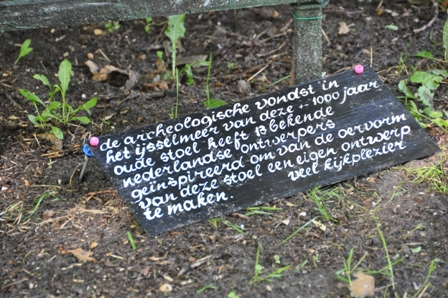 de archeologische vondst in
het ijsselmeer van deze ± 1000 jaar
oude stoel heeft 13 bekende
nederlandse ontwerpers
geïnspireerd om van de oervorm
van deze stoel een eigen ontwerp
te maken. veel kijkplezier